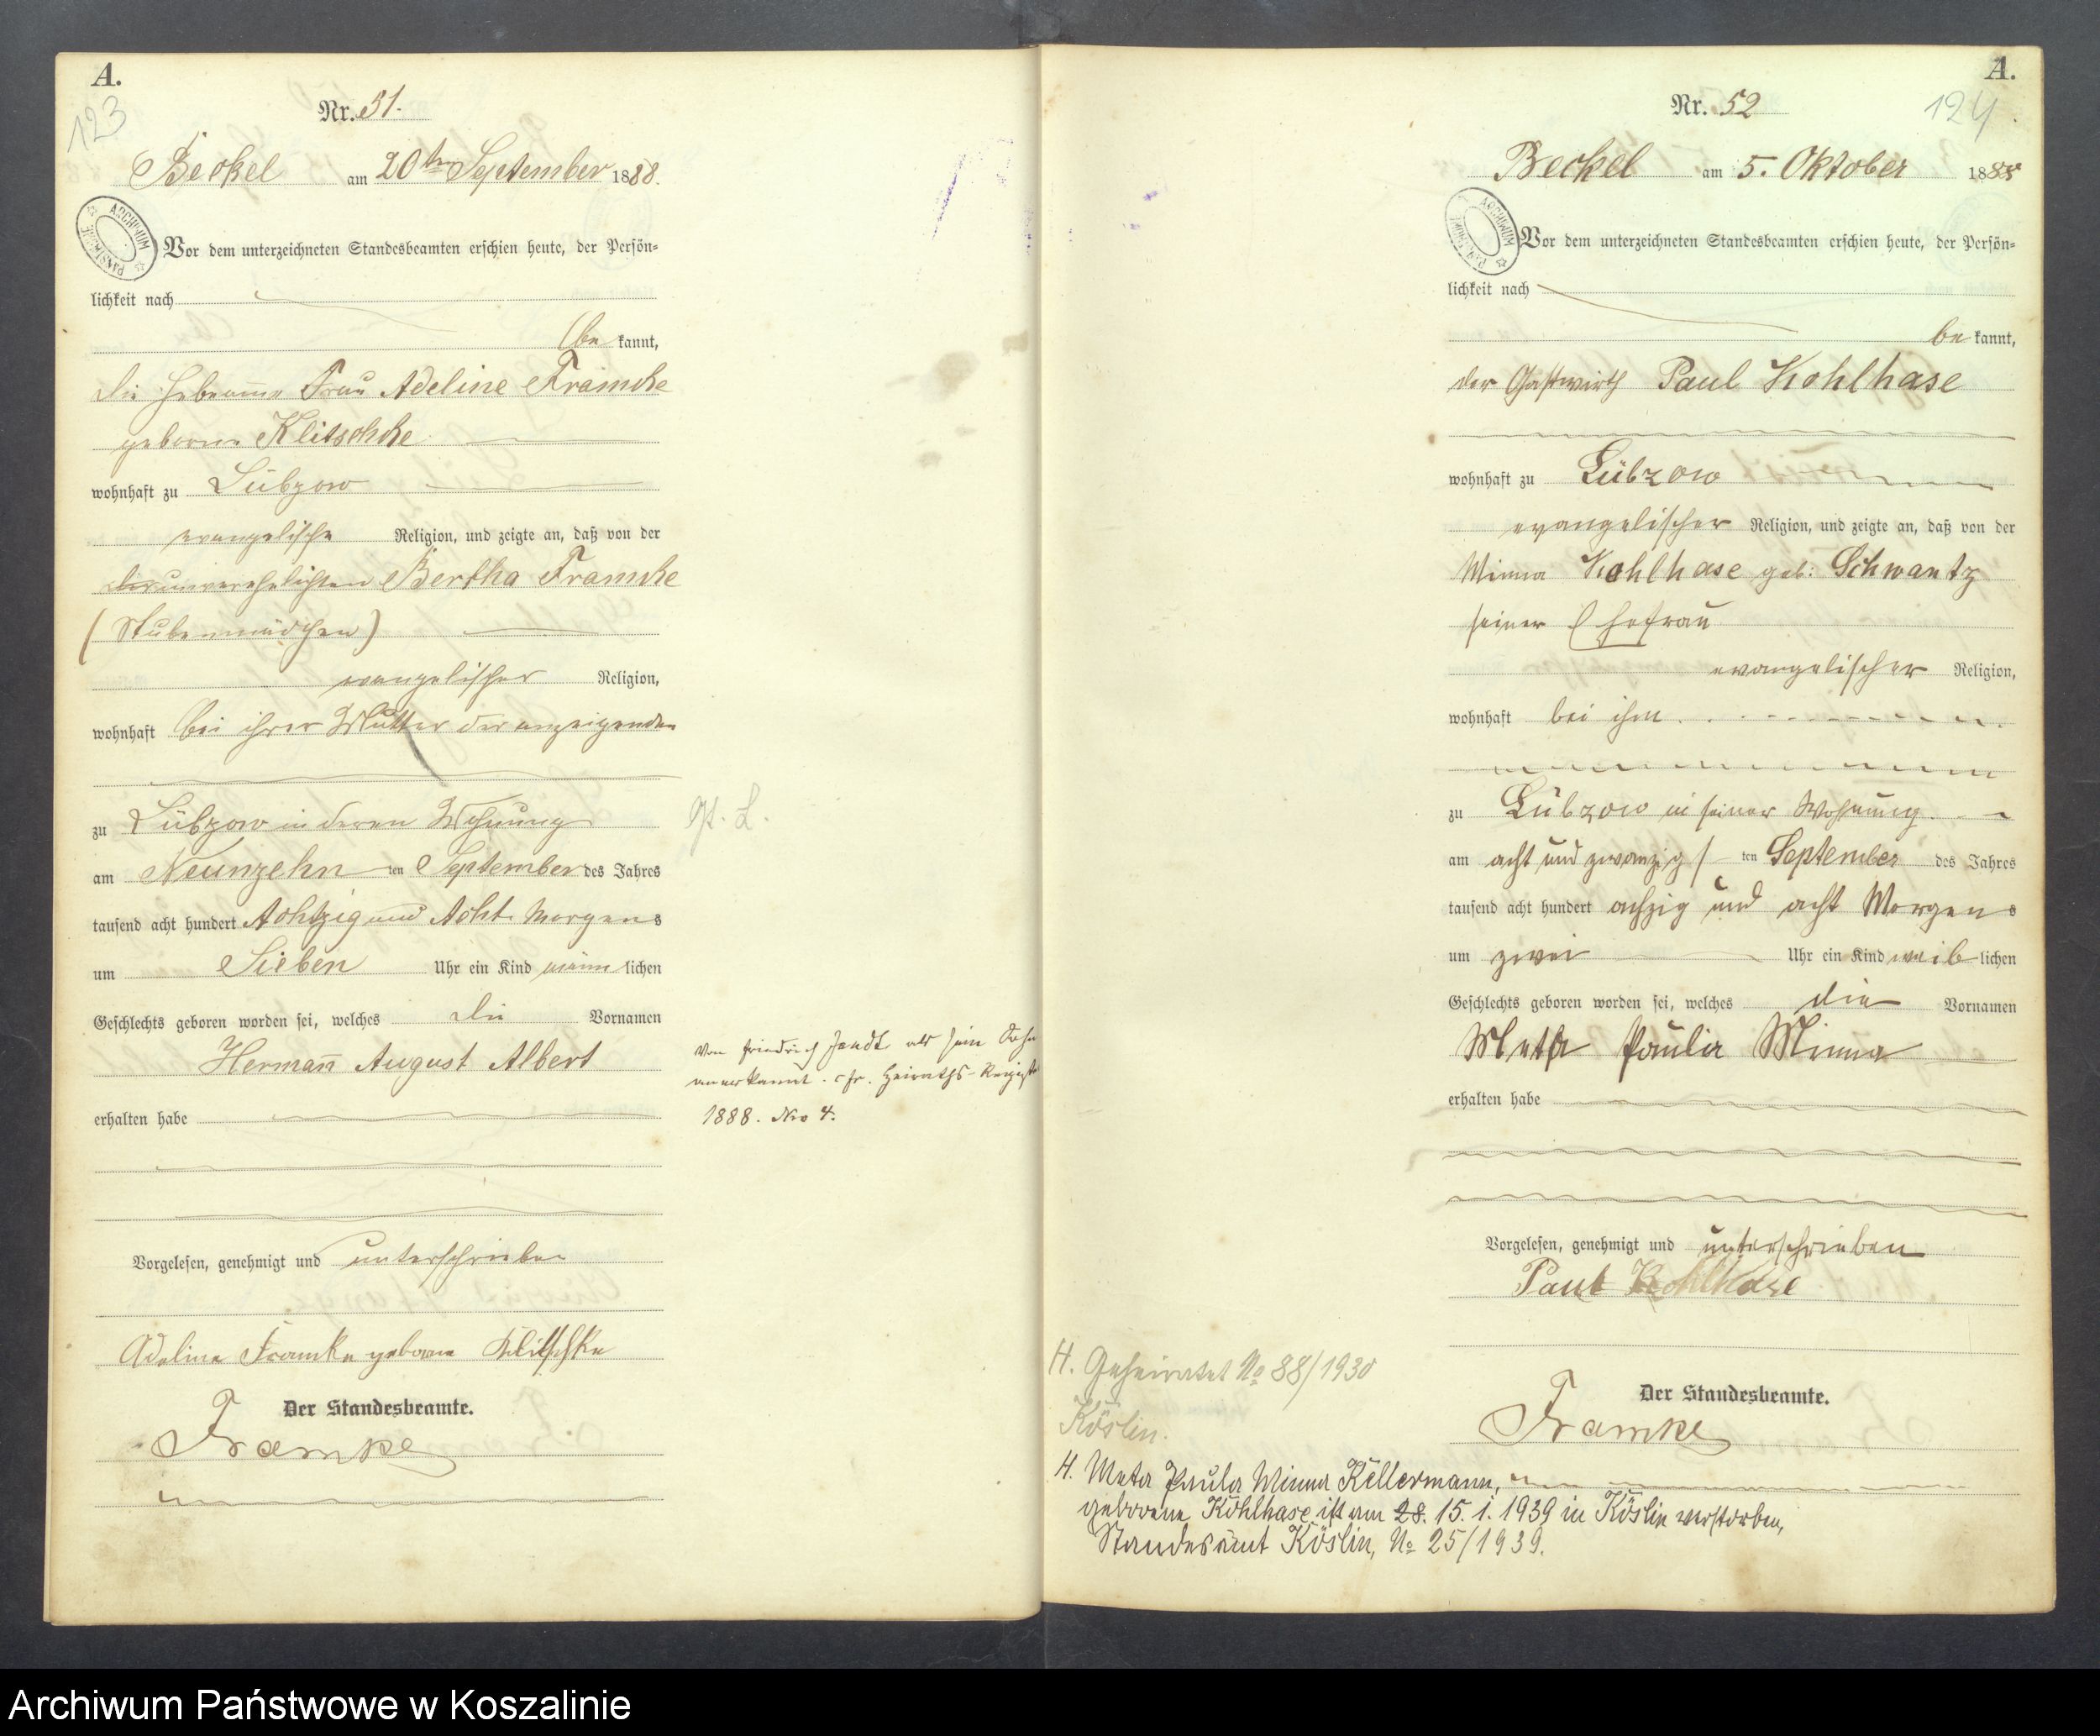 A.
123
Nr. 51.
Beckel am 20ten September 1888.
ARCHIWUM PAŃSTWOWE
Vor dem unterzeichneten Standesbeamten erschien heute, der Persön-
lichkeit nach
be kannt,
die Hebamme Frau Adeline Framcke
geborne Klitschcke
wohnhaft zu Lübzow
evangelische Religion, und zeigte an, daß von der
unverehelichten Bertha Framcke
(Stubenmädchen)
evangelischer Religion,
wohnhaft bei ihrer Mutter der anzeigenden
zu Lübzow in deren Wohnung
am Neunzehn ten September des Jahres
tausend acht hundert Achtzig und Acht Morgens
um Sieben Uhr ein Kind männ lichen
Geschlechts geboren worden sei, welches die Vornamen
Hermann August Albert
erhalten habe
Vorgelesen, genehmigt und unterschrieben
Adeline Framke geborne Klitschke
Der Standesbeamte.
Framke
Von Friedrich Jandt als sein Sohn
anerkannt. cfr. Heiraths-Register
1888. Nro 4.
A.
124
Nr. 52
Beckel am 5. Oktober 1888
ARCHIWUM PAŃSTWOWE
Vor dem unterzeichneten Standesbeamten erschien heute, der Persön-
lichkeit nach
be kannt,
der Gastwirth Paul Kohlhase
wohnhaft zu Lübzow
evangelischer Religion, und zeigte an, daß von der
Minna Kohlhase geb: Schwantz
seiner Ehefrau
evangelischer Religion,
wohnhaft bei ihm
zu Lübzow in seiner Wohnung
am acht und zwanzig ten September des Jahres
tausend acht hundert achzig und acht Morgens
um zwei Uhr ein Kind weib lichen
Geschlechts geboren worden sei, welches die Vornamen
Meta Paula Minna
erhalten habe
Vorgelesen, genehmigt und unterschrieben
Paul Kohlhase
Der Standesbeamte.
Framke
H. Geheiratet No 88/1930
Köslin.
H. Meta Paula Minna Kellermann,
geborene Kohlhase ist am 28. 15. 1. 1939 in Köslin verstorben,
Standesamt Köslin, No 25/1939.
Archiwum Państwowe w Koszalinie